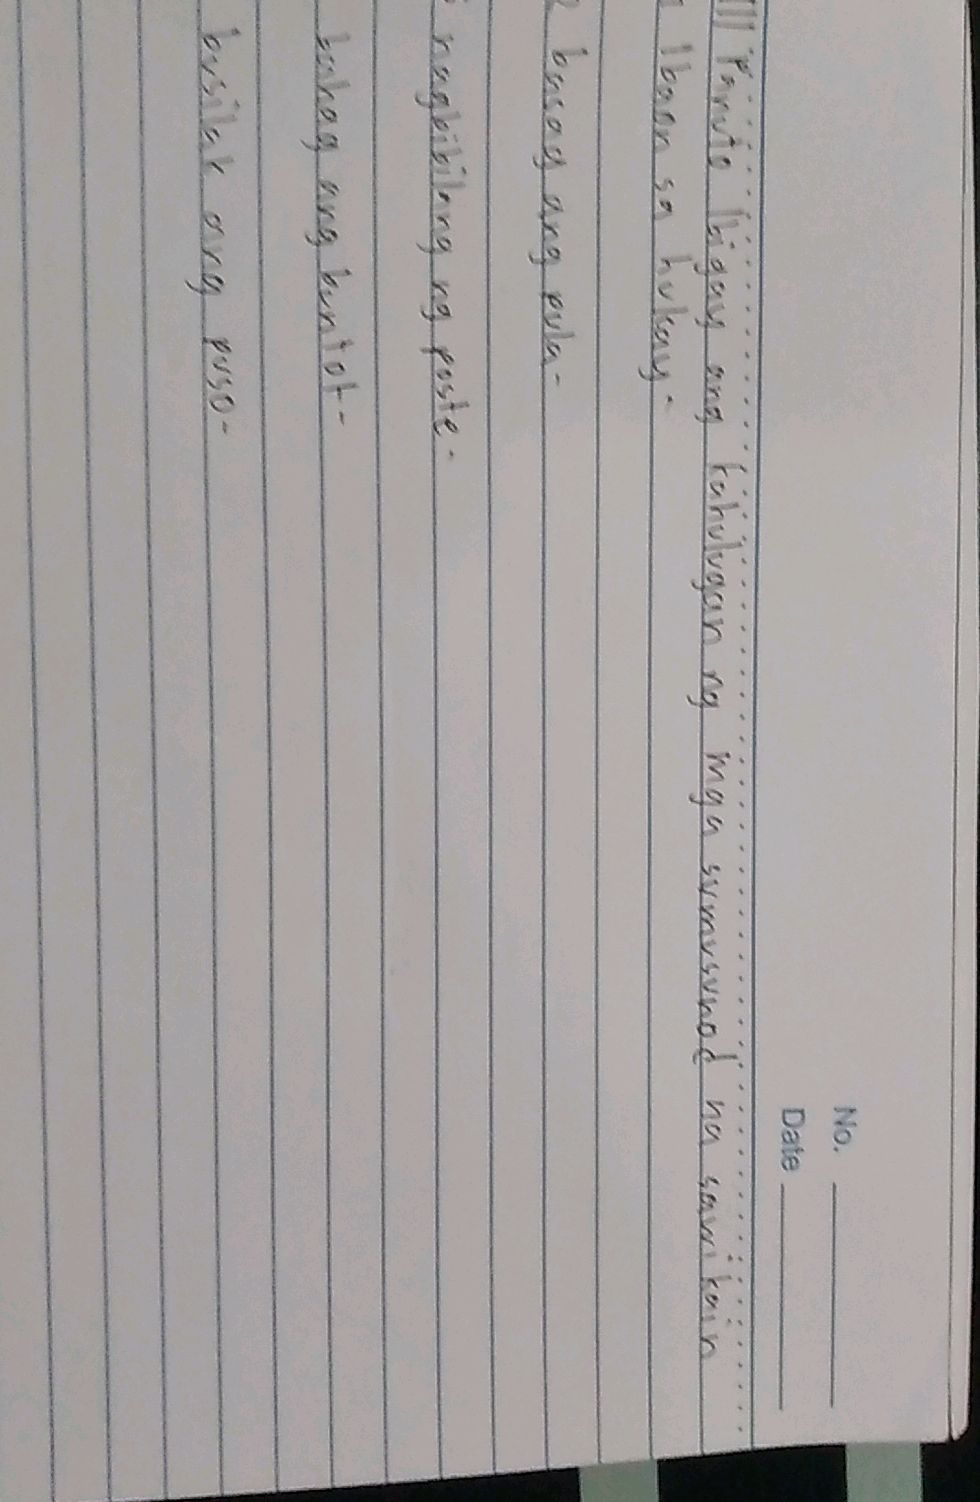 No.
Date
III Panuto Ibigay ang kahulugan ng mga sumusunod na sawikain
1 Ibaon sa hukay-
2 basag ang pula-
nagbibilang ng poste-
bahag ang buntot-
busilak ang puso-